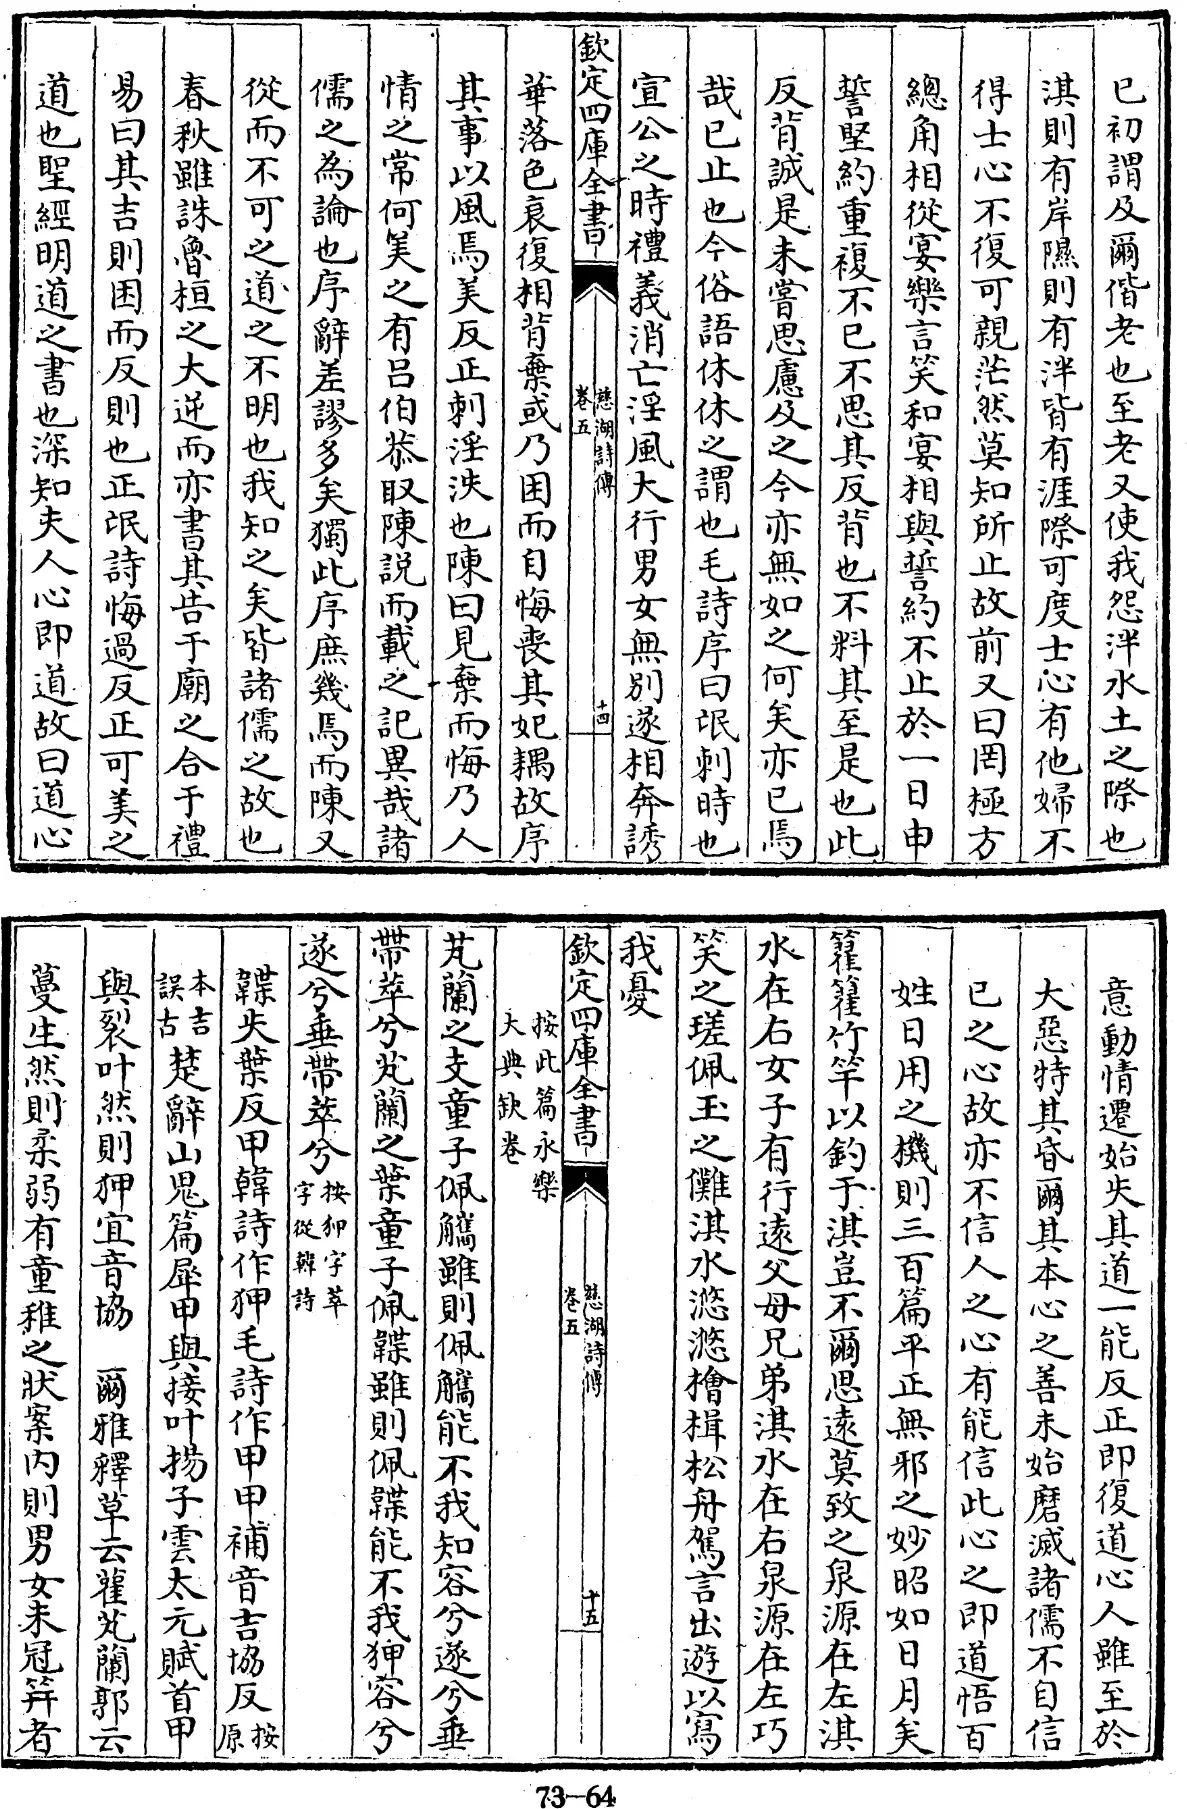 已初謂及爾偕老也至老又使我怨泮水土之際也
淇則有岸隰則有泮皆有涯際可度士心有他婦不
得士心不復可親茫然莫知所止故前又曰罔極方
總角相從宴樂言笑和宴相與誓約不止於一日申
誓堅約重複不已不思其反背也不料其至是也此
反背誠是未嘗思慮及之今亦無如之何矣亦已焉
哉已止也今俗語休休之謂也毛詩序曰氓刺時也
宣公之時禮義消亡淫風大行男女無別遂相奔誘
欽定四庫全書
慈湖詩傳
卷五
十四
華落色衰復相背棄或乃困而自悔喪其妃耦故序
其事以風焉美反正刺淫泆也陳曰見棄而悔乃人
情之常何美之有呂伯恭取陳說而載之記異哉諸
儒之為論也序辭差謬多矣獨此序庶幾焉而陳又
從而不可之道之不明也我知之矣皆諸儒之故也
春秋雖誅魯桓之大逆而亦書其告于廟之合于禮
易曰其吉則困而反則也正氓詩悔過反正可美之
道也聖經明道之書也深知夫人心即道故曰道心
意動情遷始失其道一能反正即復道心人雖至於
大惡特其昏爾其本心之善未始磨滅諸儒不自信
已之心故亦不信人之心有能信此心之即道悟百
姓日用之機則三百篇平正無邪之妙昭如日月矣
籊籊竹竿以釣于淇豈不爾思遠莫致之泉源在左淇
水在右女子有行遠父母兄弟淇水在右泉源在左巧
笑之瑳佩玉之儺淇水滺滺檜楫松舟駕言出遊以寫
我憂
欽定四庫全書
慈湖詩傳
卷五
十五
按此篇永樂
大典缺卷
芄蘭之支童子佩觿雖則佩觿能不我知容兮遂兮垂
帶萃兮芄蘭之葉童子佩韘雖則佩韘能不我狎容兮
遂兮垂帶萃兮按狎字萃
字從韓詩
韘失葉反甲韓詩作狎毛詩作甲甲補音吉協反按
原
本吉
誤古楚辭山鬼篇犀甲與接叶揚子雲太元賦首甲
與裂叶然則狎宜音協　爾雅釋草云雚芄蘭郭云
蔓生然則柔弱有童稚之狀案內則男女未冠笄者
73—64